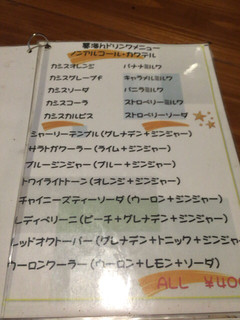 夢海カドリンクメニュー
ノンアルコール・カクテル
カシスオレンジ　バナナミルク
カシスグレープF　キャラメルミルク
カシスソーダ　バニラミルク
カシスコーラ　ストロベリーミルク
カシスカルピス　ストロベリーソーダ
シャーリーテンプル(グレナデン+ジンジャー)
サラトガクーラー(ライム+ジンジャー)
ブルージンジャー(ブルー+ジンジャー)
トワイライトトーン(オレンジ+ジンジャー)
チャイニーズティーソーダ(ウーロン+ジンジャー)
レディベリーニ(ピーチ+グレナデン+ジンジャー)
レッドオクトーバー(グレナデン+トニック+ジンジャー
ウーロンクーラー(ウーロン+レモン+ソーダ)
ALL ¥400